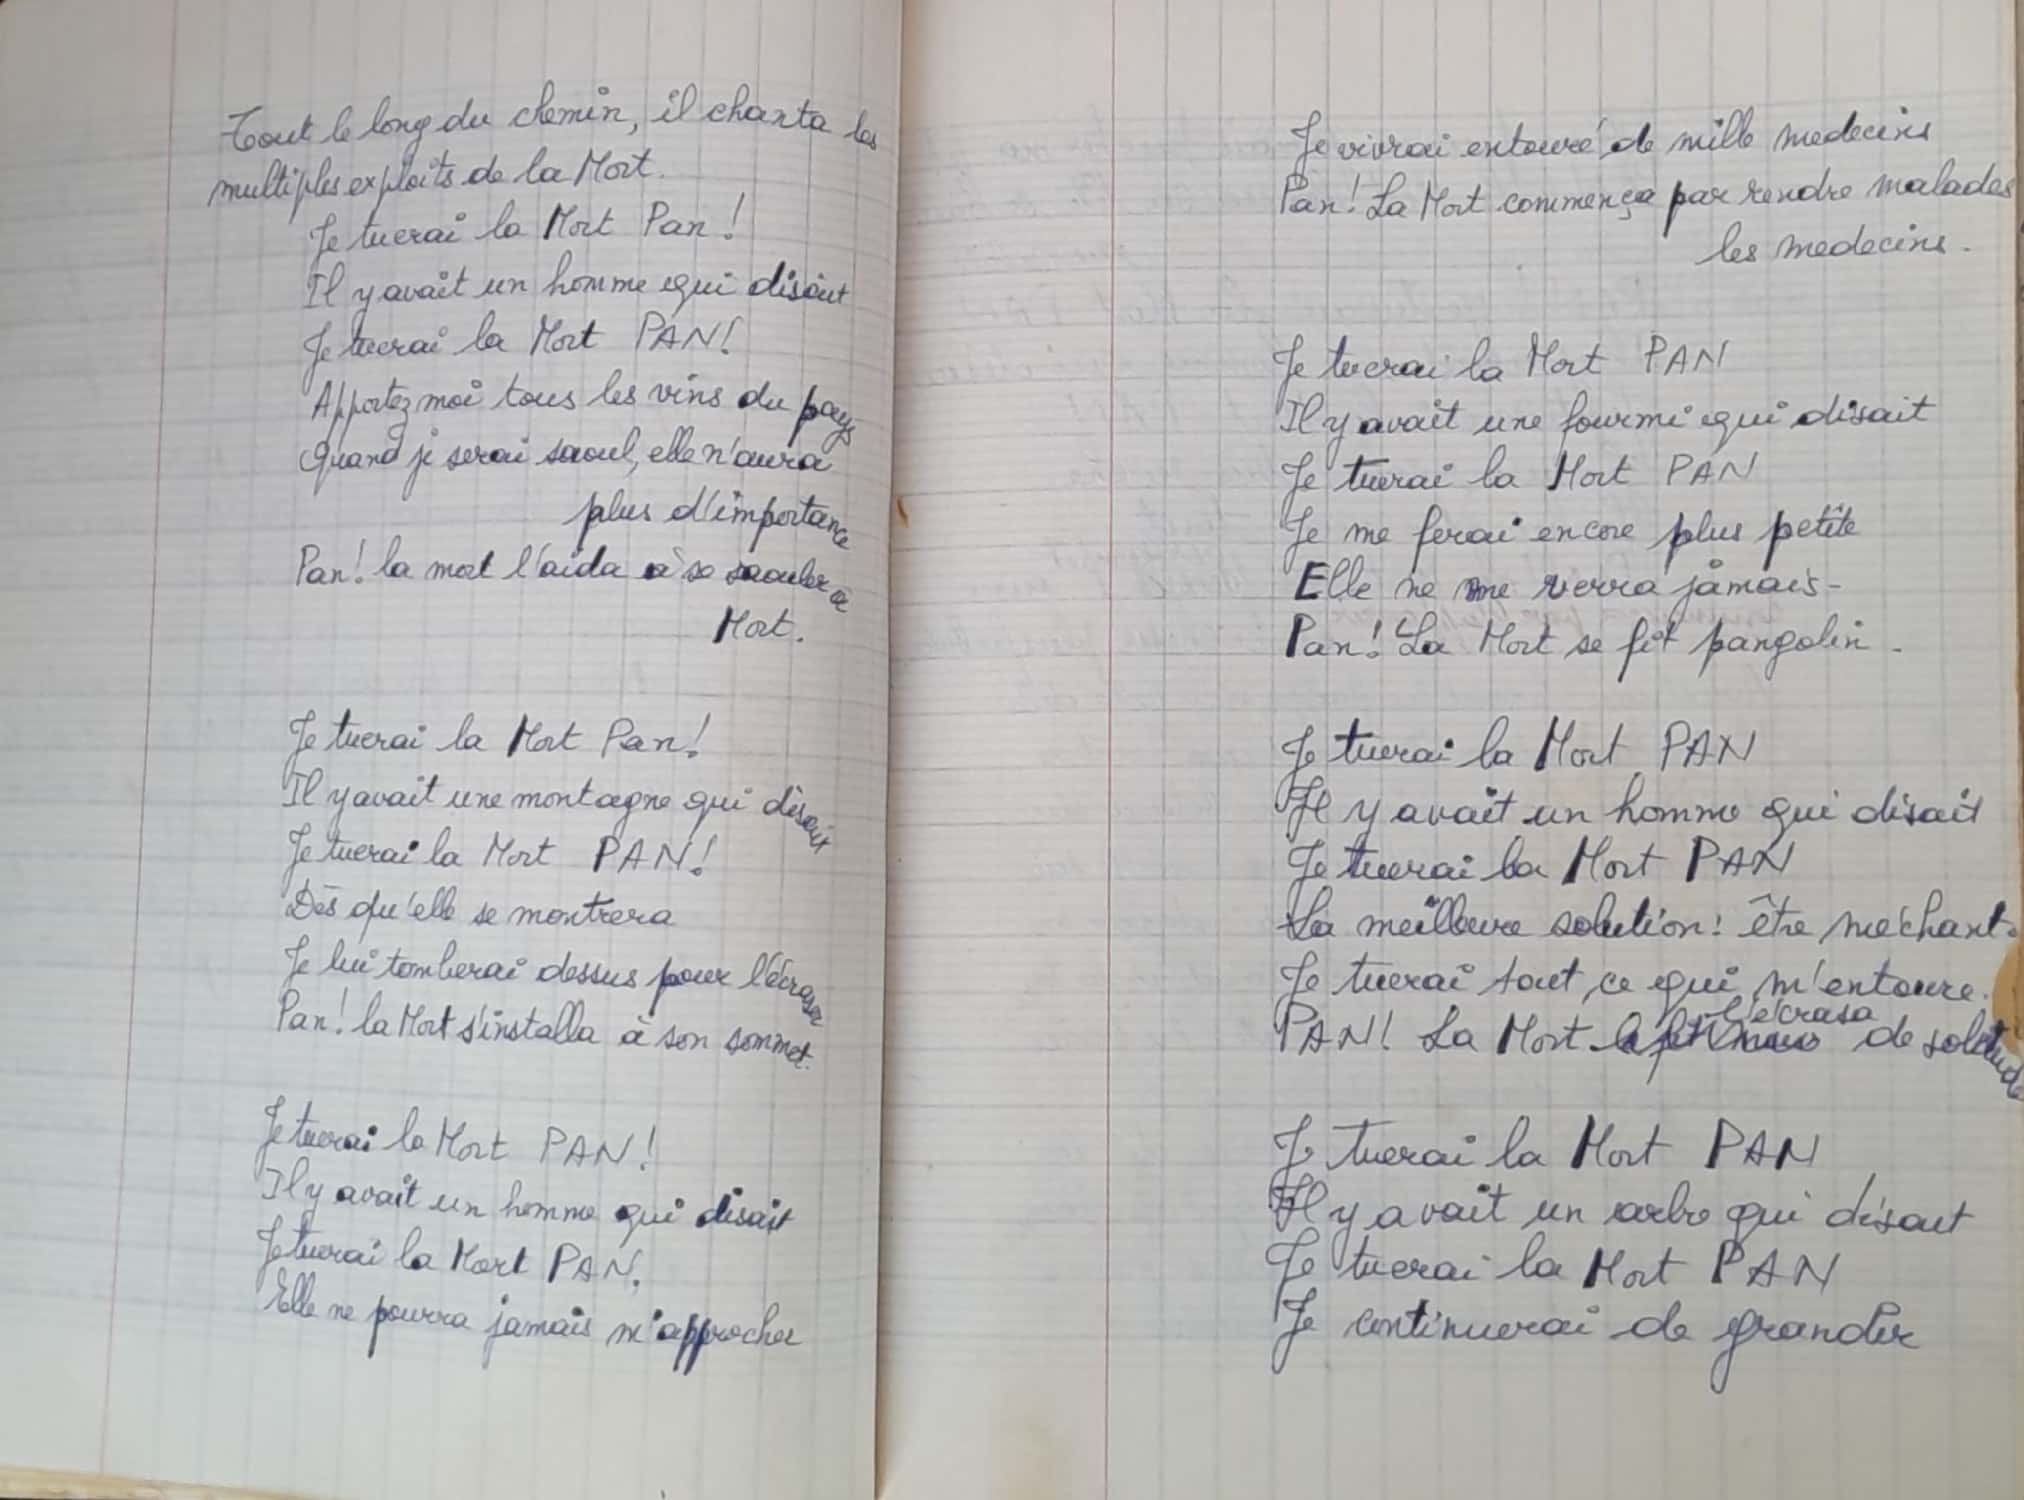 Tout le long du chemin, il chanta les
multiples exploits de la Mort.
Je tuerai la Mort Pan !
Il y avait un homme qui disait
Je tuerai la Mort PAN!
Apportez moi tous les vins du pays
Quand je serai saoul, elle n'aura
plus d'importance
Pan! la mort l'aida à se saouler à
Mort.
Je tuerai la Mort Pan!
Il y avait une montagne qui disait
Je tuerai la Mort PAN!
Dès qu'elle se montrera
Je lui tomberai dessus pour l'écraser
Pan! la Mort s'installa à son sommet.
Je tuerai la Mort PAN!
Il y avait un homme qui disait
Je tuerai la Mort PAN.
Elle ne pourra jamais m'approcher
Je vivrai entouré de mille medecins
Pan! La Mort commença par rendre malades
les medecins.
Je tuerai la Mort PAN
Il y avait une fourmi qui disait
Je tuerai la Mort PAN
Je me ferai encore plus petite
Elle ne me verra jamais-
Pan! La Mort se fit pangolin.
Je tuerai la Mort PAN
Il y avait un homme qui disait
Je tuerai la Mort PAN
La meilleure solution: être méchant.
Je tuerai tout ce qui m'entoure.
l'écrasa
PAN! La Mort de solitude
Je tuerai la Mort PAN
Il y avait un arbre qui disait
Je tuerai la Mort PAN
Je continuerai de grandir